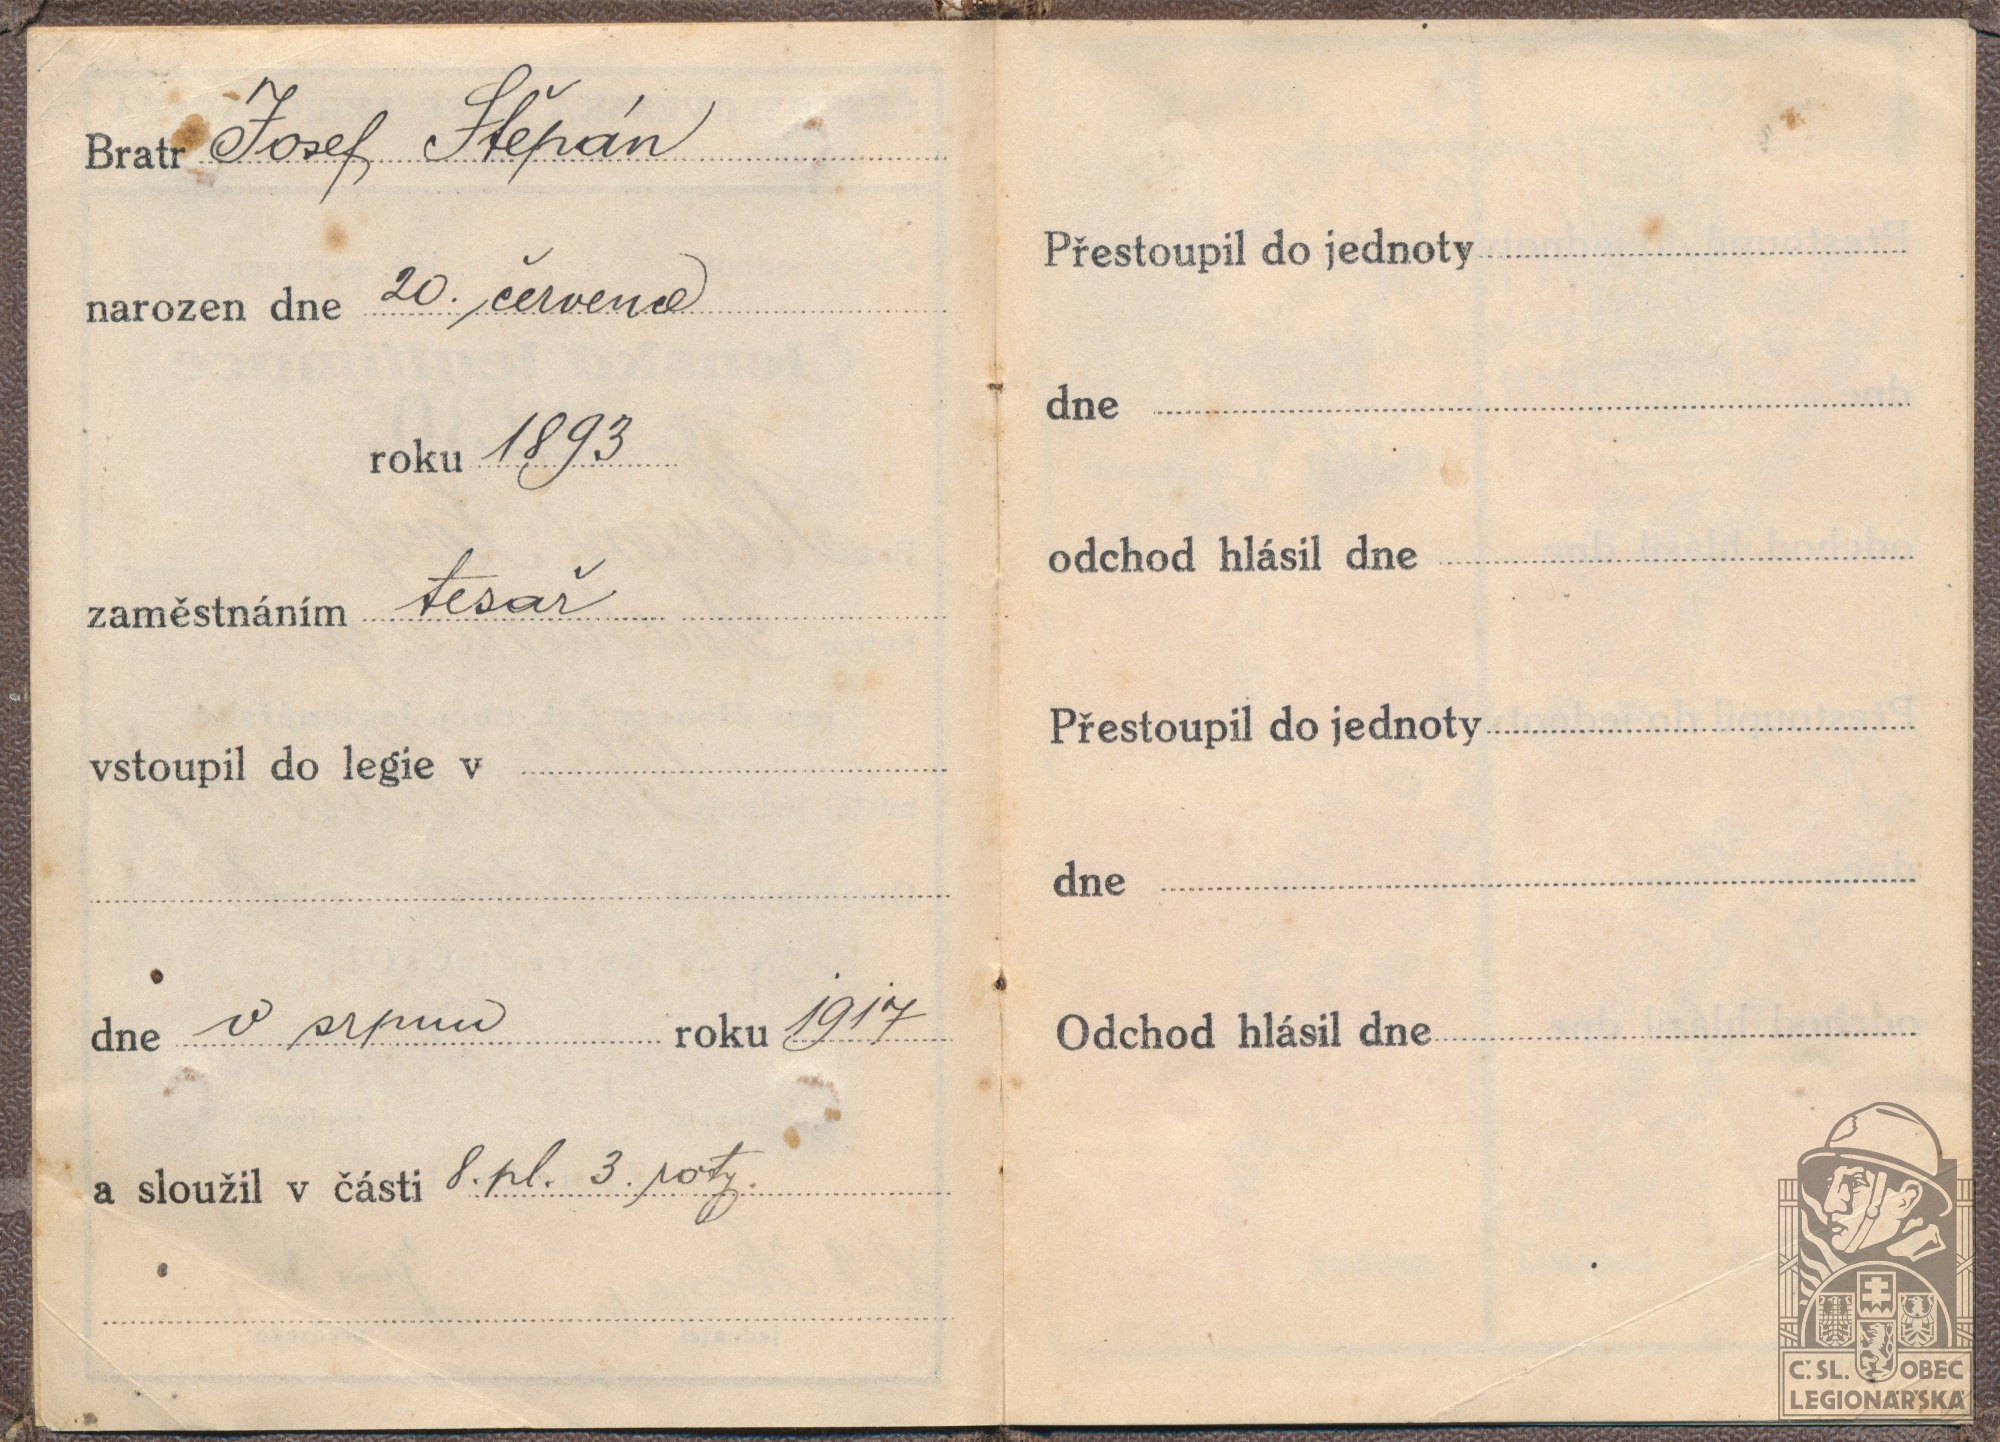 Bratr Josef Štěpán
narozen dne 20. července
roku 1893
zaměstnáním tesař
vstoupil do legie v
dne v srpnu roku 1917
a sloužil v části 8. pl. 3. roty.
Přestoupil do jednoty
dne
odchod hlásil dne
Přestoupil do jednoty
dne
Odchod hlásil dne
Č. SL. OBEC
LEGIONÁŘSKÁ